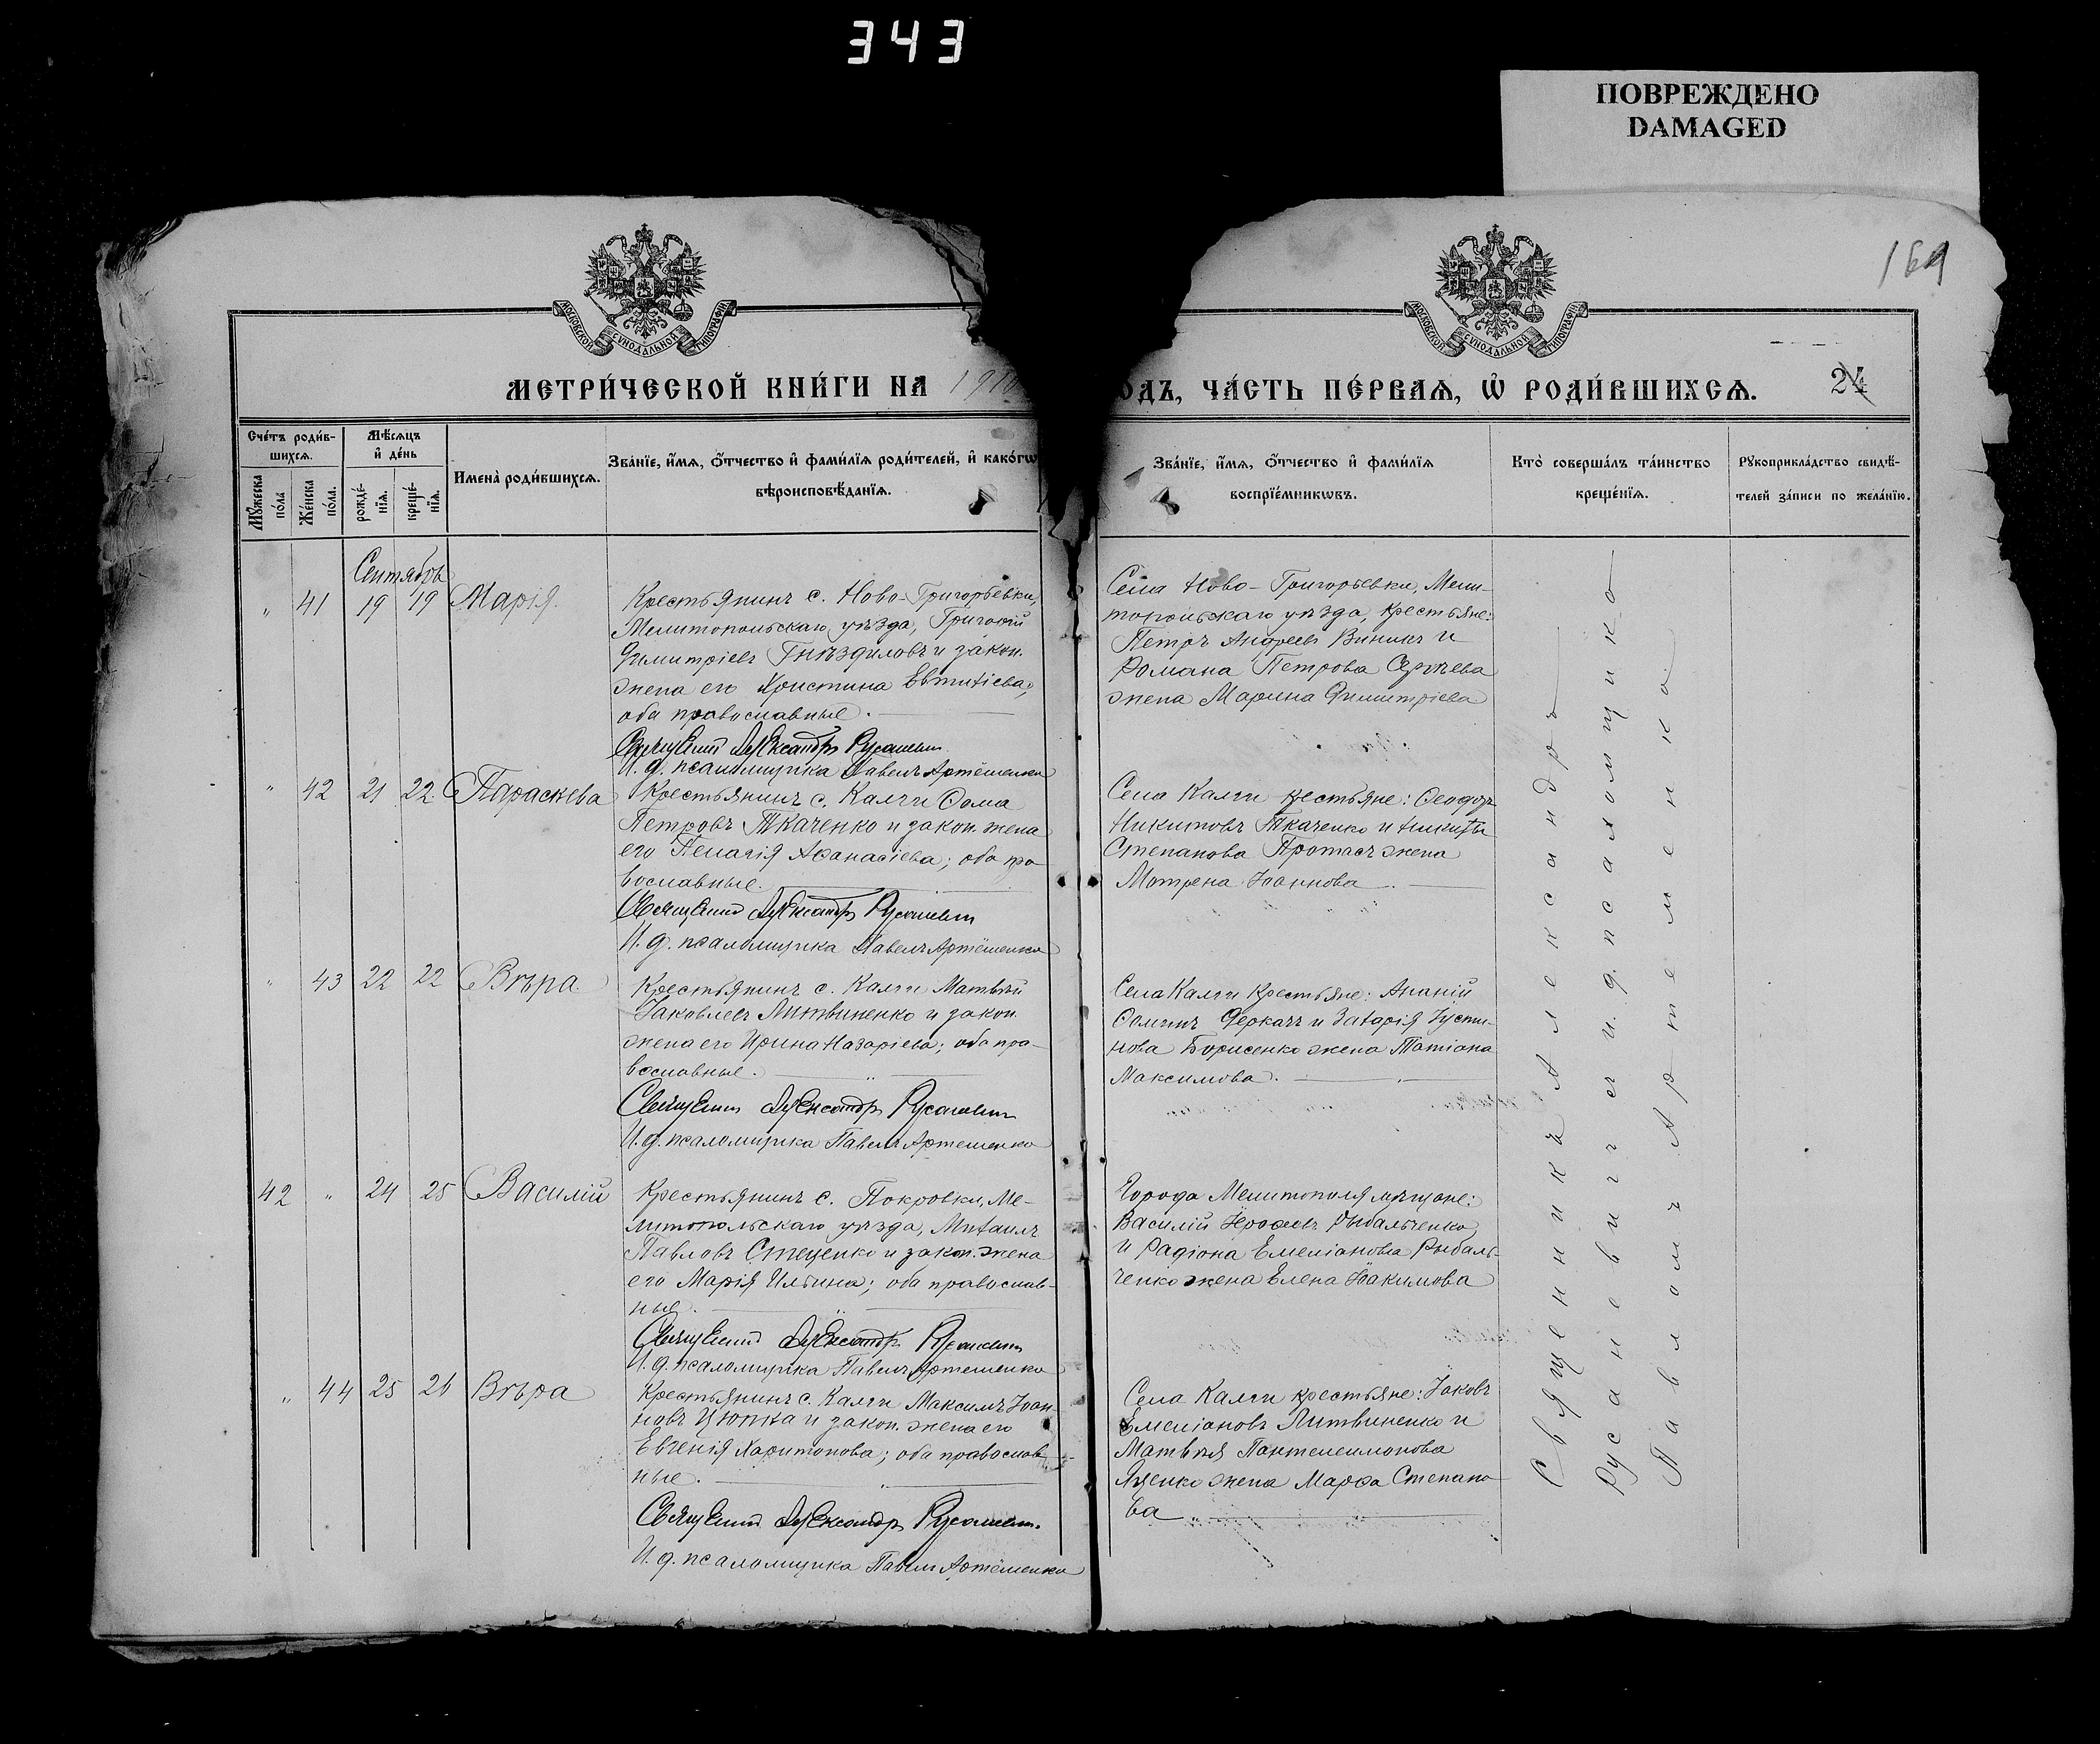 343
ПОВРЕЖДЕНО
DAMAGED
169
МОСКОВСКОЙ СУНОДАЛЬНОЙ ТИПОГРАФІИ
МОСКОВСКОЙ СУНОДАЛЬНОЙ ТИПОГРАФІИ
МЕТРИ́ЧЕСКОЙ КНИ́ГИ НА 1910
ОДЪ, ЧА́СТЬ ПЕ́РВАѦ, Ѡ҆ РОДИ́ВШИХСѦ.
24
Сче́тъ роди́в-
шихсѧ.
Мѣ́сѧцъ
и҆ де́нь
Мꙋ́жеска
по́ла
Же́нска
по́ла.
рожде́-
нїѧ.
креще́-
нїѧ.
И҆мена̀ роди́вшихсѧ.
Зва́нїе, и҆́мѧ, ѻ҆́тчество и҆ фами́лїѧ роди́телей, и҆ како́гѡ
вѣроисповѣ́данїѧ.
Зва́нїе, и҆́мѧ, ѻ҆́тчество и҆ фами́лїѧ
воспрїе́мникѡвъ.
Кто̀ соверша́лъ та́инство
креще́нїѧ.
Рꙋкоприкла́дство свидѣ́-
телей за́писи по жела́нїю.
Сентябрь
" 41 19 19 Марія.
Крестьянинъ с. Ново-Григорьевки,
Мелитопольскаго уѣзда, Григорій
Димитріевъ Гнѣздиловъ и закон.
жена его Христина Евтихіева,
оба православные.
Священник Александръ Русаневич
И. д. псаломщика Павелъ Артёменко
Села Ново-Григорьевки, Мели-
топольскаго уѣзда, крестьяне:
Петръ Андреевъ Виникъ и
Романа Петрова
жена Марина Димитріева
" 42 21 22 Параскева
Крестьянинъ с. Калги Ѳома
Петровъ Ткаченко и закон. жена
его Пелагія Аѳанасіева; оба пра
вославные.
Священник Александръ Русаневич
И. д. псаломщика Павелъ Артёменко
Села Калги крестьяне: Ѳеодоръ
Никитовъ Ткаченко и Никиты
Степанова Протасъ жена
Матрена Іоаннова
" 43 22 22 Вѣра.
Крестьянинъ с. Калги Матвѣй
Іаковлевъ Литвиненко и закон.
жена его Ирина Назаріева; оба пра-
вославные.
Священник Александръ Русаневич
И. д. псаломщика Павелъ Артеменко
Села Калги крестьяне: Ананій
Ѳоминъ Деркачъ и Захарія Іусти-
нова Борисенко жена Татіана
Максимова.
42 " 24 25 Василій
Крестьянинъ с. Покровки, Ме-
литопольскаго уѣзда, Михаилъ
Павловъ Стеценко и закон. жена
его Марія Ильина; оба православ-
ные.
Священник Александръ Русаневич
И. д. псаломщика Павелъ Артеменко
Города Мелитополя мѣщане:
Василій Іероѳеевъ Рыбальченко
и Радіона Емеліанова Рыбаль-
ченко жена Елена Іоакимова
" 44 25 26 Вѣра
Крестьянинъ с. Калги Максимъ Іоан-
новъ Цюпка и закон. жена его
Евгенія Харитонова; оба православ-
ные.
Священник Александръ Русаневич.
И. д. псаломщика Павелъ Артёменко
Села Калги крестьяне: Іаковъ
Емеліановъ Литвиненко и
Матвѣя Пантелеимонова
жена Марѳа Степано
ва
Священникъ Александръ
Русаневичъ и и. д. псаломщика
Павломъ Артеменко.